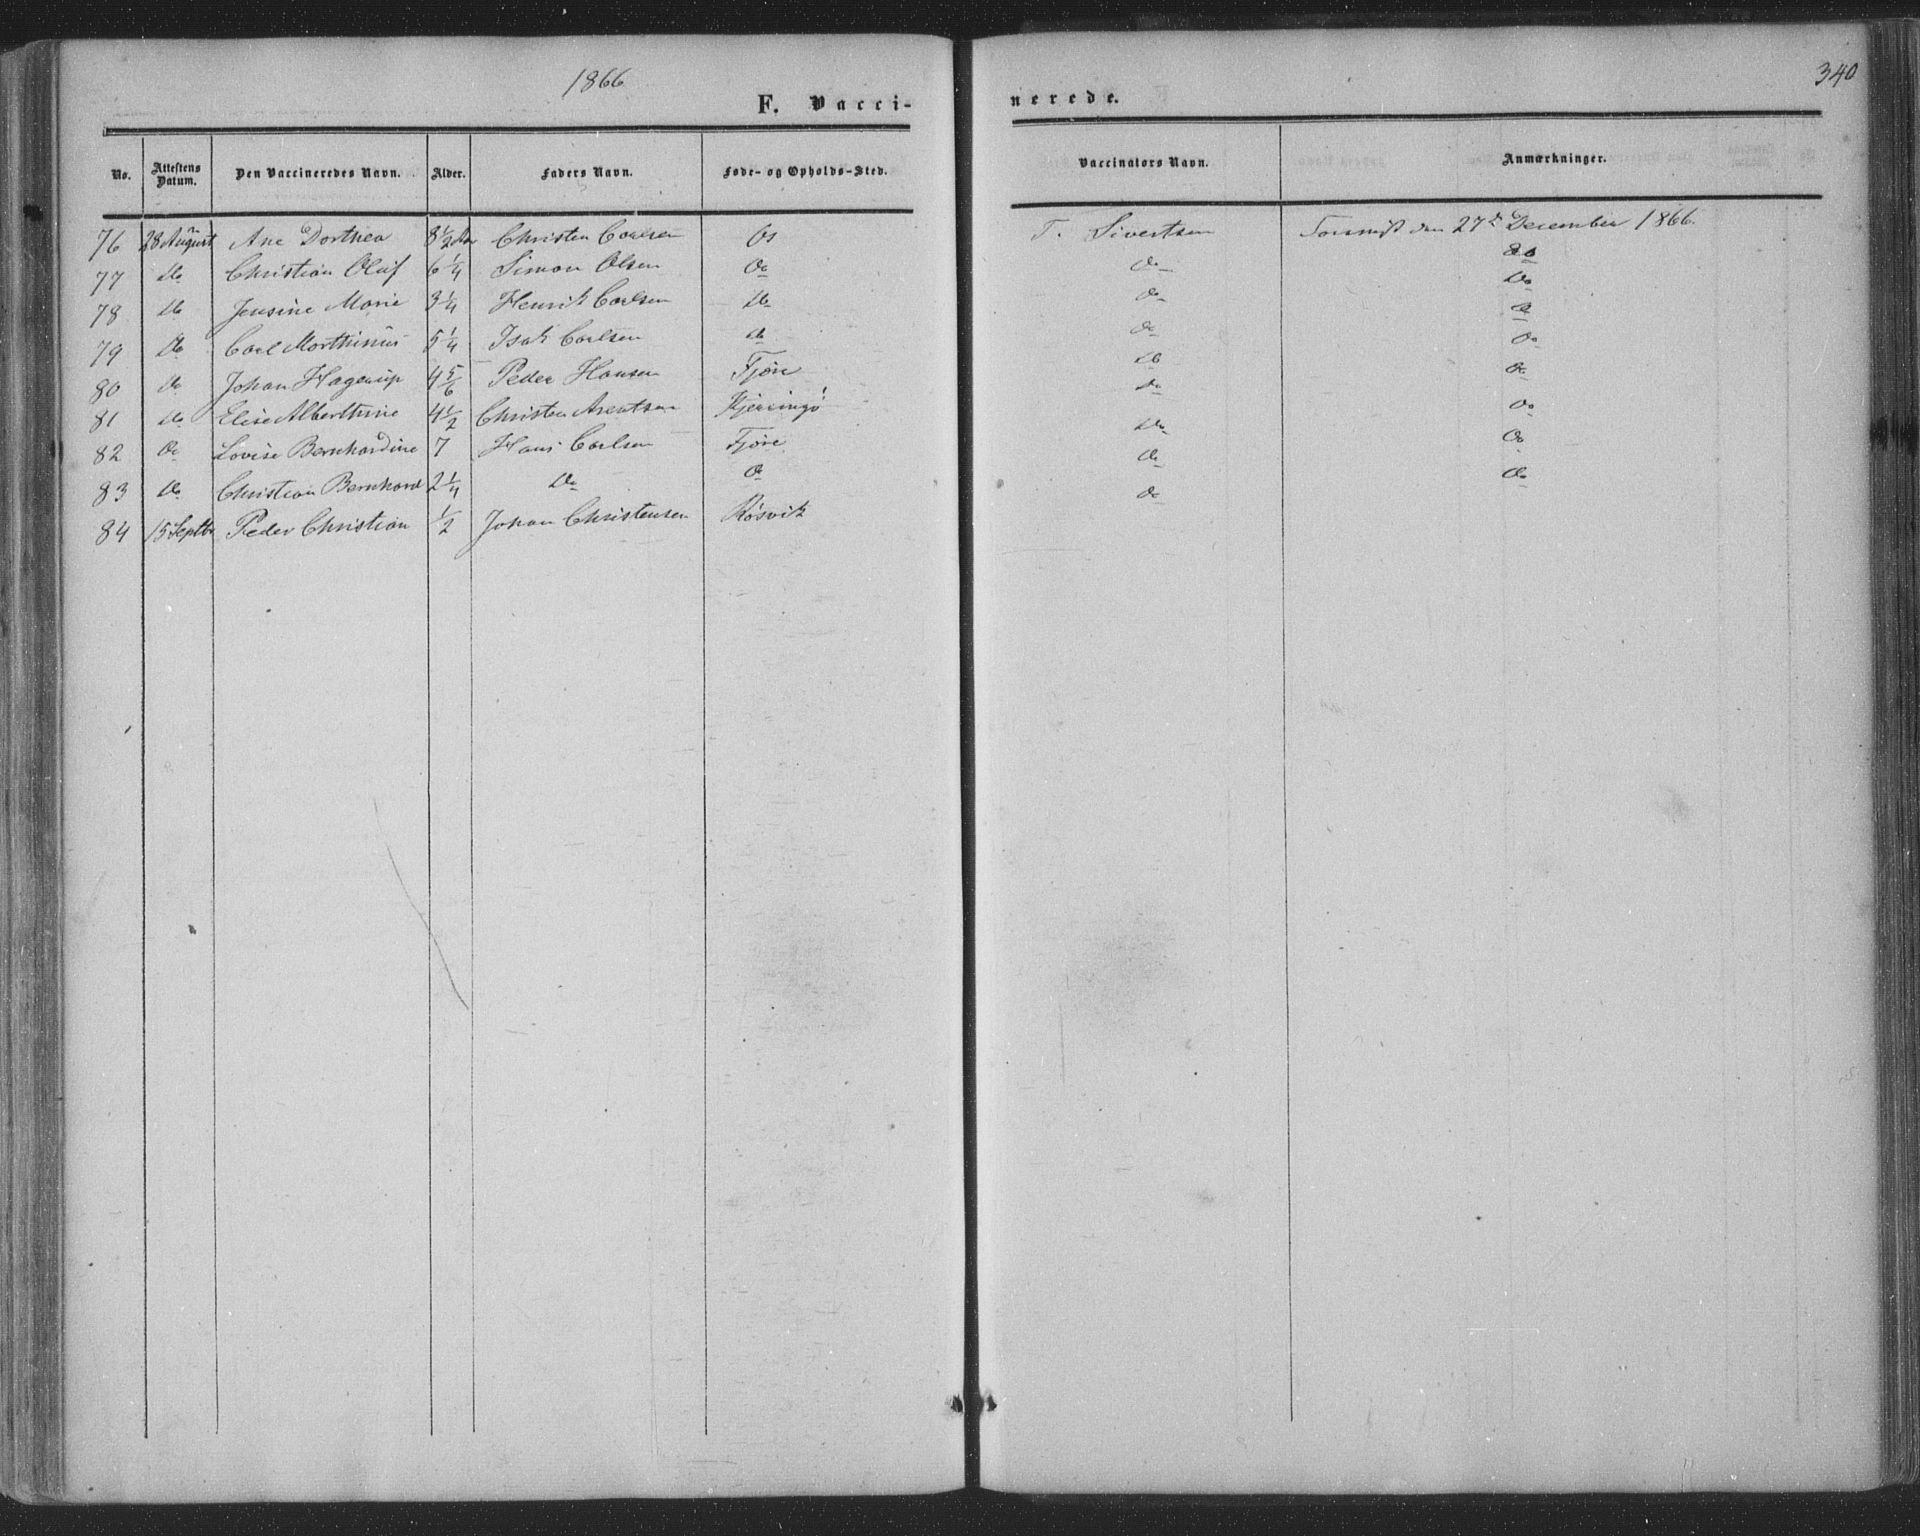 1866
340
F. Vacci-
nerede.
No. Attestens Datum. Den Vaccineredes Navn. Alder. Faders Navn. Føde- og Opholds-Sted. Vaccinators Navn. Anmærkninger.
76 28 August Ane Dorthea 8 1/2 Aar Christen Carlsen Os T. Sivertsen den 27de December 1866.
77 Do Christian Oluf 6 1/4 Simon Olsen Do Do Do
78 Do Jensine Marie 3 1/4 Henrik Carlsen Do Do Do
79 Do Carl Morthinus 5 1/4 Isak Carlsen Do Do Do
80 Do Johan Hagerup 4 5/6 Peder Hansen Fjøre Do Do
81 Do Elise Alberthine 4 1/2 Christen Arentsen Kjerringø Do Do
82 Do Lovise Bernhardine 7 Hans Carlsen Fjøre Do Do
83 Do Christian Bernhard 2 1/4 Do Do Do Do
84 15 Septbr Peder Christian 1/2 Johan Christensen Røsvik Do Do